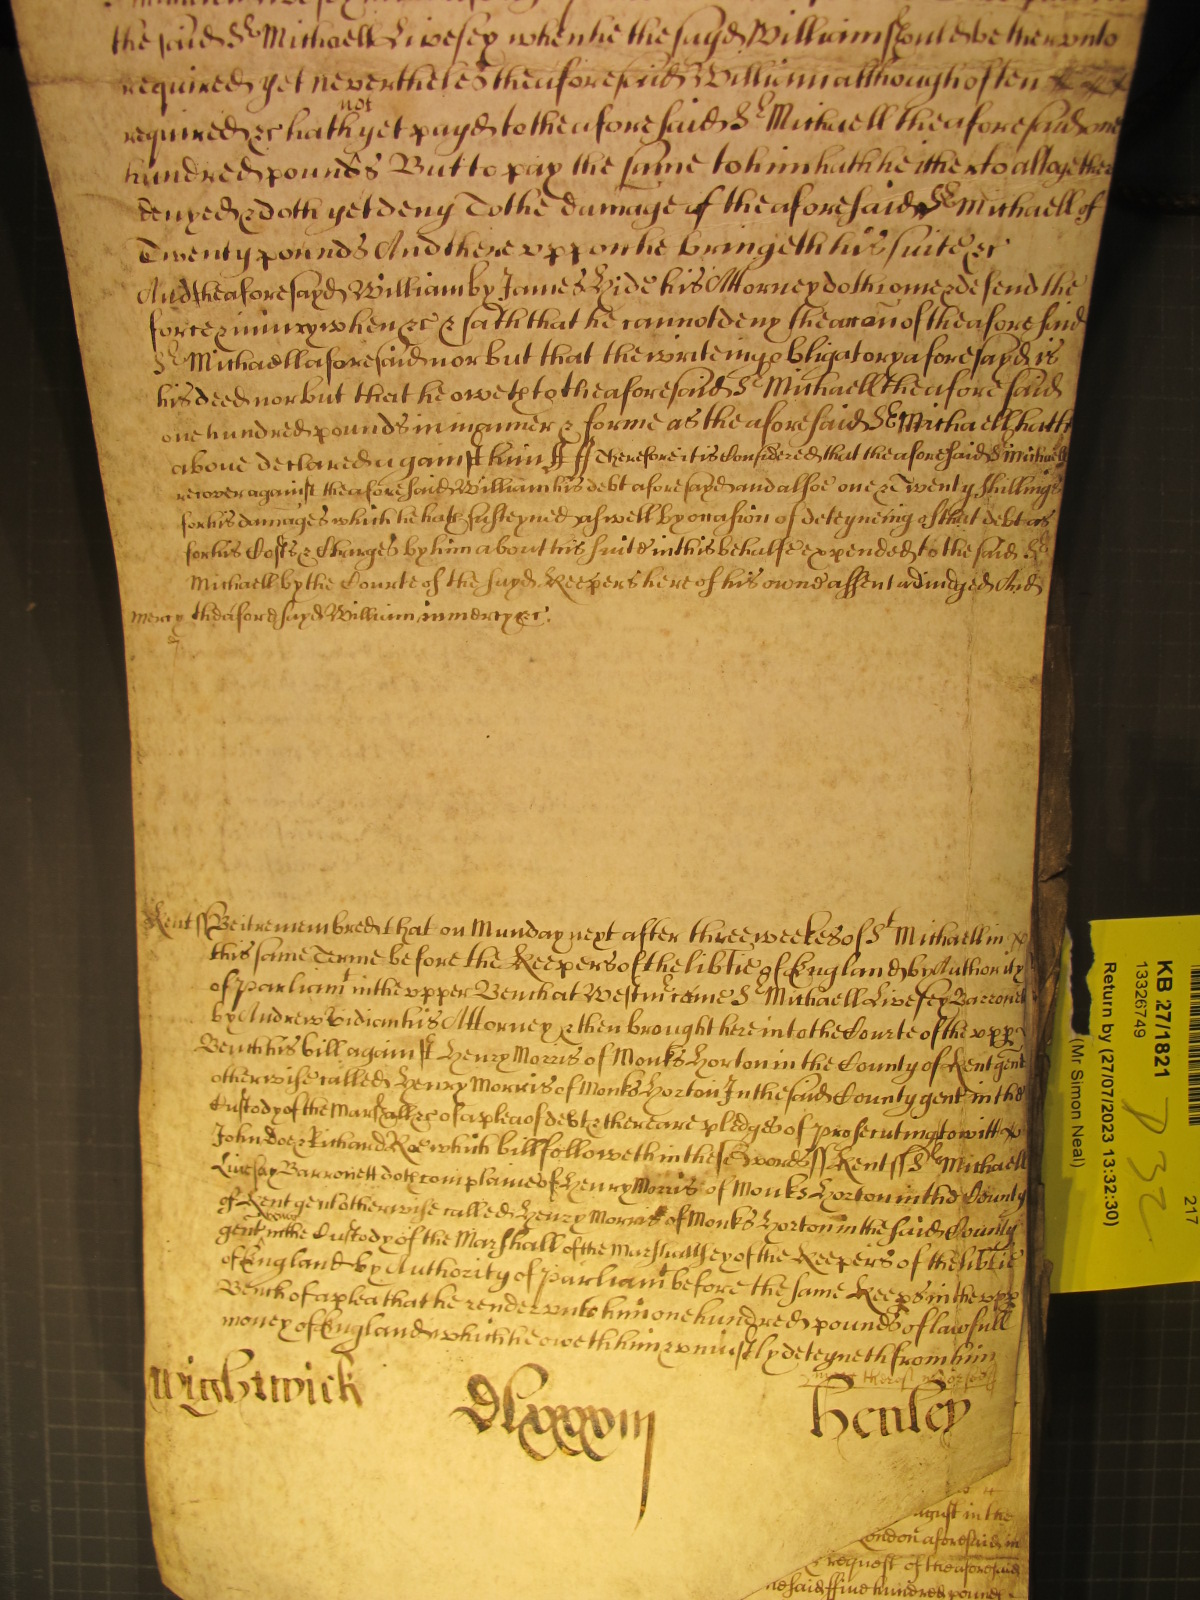 the said Sr Michaell Livesey when he the sayd William should be therunto
required yet neverthelesse the aforesaid William although often
required &c hath not yet payd to the aforesaid Sr Michaell the aforesaid one
hundred pounds But to pay the same to him hath hitherto altogether
denyed & doth yet deny To the damage of the aforesaid Sr Michaell of
Twenty pounds And thereuppon he bringeth his suite &c
And the aforesayd William by James Hide his Attorney doth come & defend the
force & iniury when &c & saith that he cannot deny the accon of the aforesaid
Sr Michaell aforesaid nor but that the writeing obligatory aforesayd is
his deed nor but that he oweth to the aforesaid Sr Michaell the aforesaid
one hundred pounds in manner & forme as the aforesaid Sr Michaell hath
above declared against him Therefore it is Considered that the aforesaid Sr Michaell
recover against the aforesaid William his debt aforesayd and alsoe one & Twenty shillings
for his damages which he hath susteyned aswell by occasion of deteyneing of that debt as
for his Costs & Charges by him about his suite in this behalfe expended to the said Sr
Michaell by the Courte of the sayd Keepers here of his owne assent adiudged And
mercy the aforesayd William in mercy &c.
Kent ss Be it remembred that on Munday next after three weekes of St Michaell in
this same Terme before the Keepers of the libtie of England by Authority
of parliamt in the upper Bench at Westmr came Sr Michaell Livesey Barronett
by Andrew Vidian his Attorney & then brought here into the Courte of the upp
Bench his bill against Henry Morris of Monks Horton in the County of Kent gent
otherwise called Henry Morris of Monks Horton In the said County gent in the
Custody of the Marshall &c of a plea of debt & there are pledges of prosecuting to witt
John Doe & Richard Roe which bill followeth in these words ss Kent ss Sr Michaell
Livesay Barronett doth complaine of Henry Morris of Monks Horton in the County
of Kent gent otherwise called Henry Morris of Monks Horton in the said County
gent in the Custody of the Marshall of the Marshallsey of the Keepers of the libtie
of England by Authority of parliamt before the same Keeps in the upp
Bench of a plea that he render unto him one hundred pounds of lawfull
money of England which he oweth him & uniustly deteyneth from him
Wightwick
Dlxxxviij
Henley
August in the
London aforesaid in
request of the aforesaid
the said ffive hundred pounds
KB 27/1821
13326749
Return by (27/07/2023 13:32:30)
(Mr Simon Neal)
217